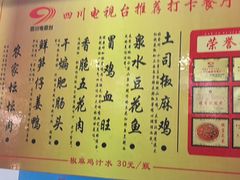 四川电视台推荐打卡餐厅
四川电视台
土司椒麻鸡
泉水豆花鱼
冒鸡血旺
香脆五花肉
干煸肥肠头
鲜笋仔姜鸭
农家坛坛肉
荣誉
椒麻鸡汁水 30元/瓶